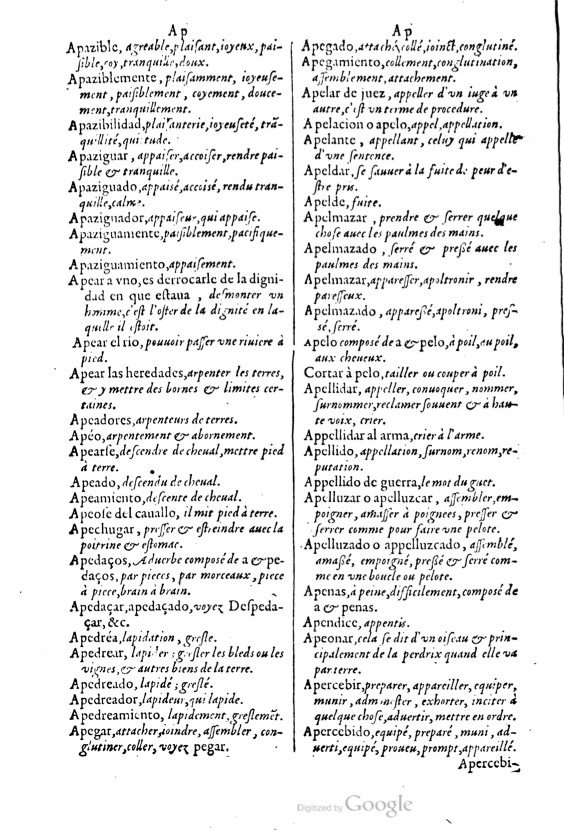 Ap
Apazible, agreable, plaisant, ioyeux, pai-
sible, coy, tranquille, doux.
Apaziblemente, plaisamment, ioyeuse-
ment, paisiblement, coyement, douce-
ment, tranquillement.
Apazibilidad, plaisanterie, ioyeuseté, trã-
quillité, quietude.
Apaziguar, appaiser, accoiser, rendre pai-
sible & tranquille.
Apaziguado, appaisé, accoisé, rendu tran-
quille, calme.
Apaziguador, appaiseur, qui appaise.
Apaziguamente, paisiblement, pacifique-
ment.
Apaziguamiento, appaisement.
Apear a vno, es derrocarle de la digni-
dad en que estaua, desmonter vn
homme, c'est l'oster de la dignité en la-
quelle il estoit.
Apear el rio, pouuoir passer vne riuiere à
pied.
Apear las heredades, arpenter les terres,
& y mettre des bornes & limites cer-
taines.
Apeadores, arpenteurs de terres.
Apéo, arpentement & abornement.
Apearse, descendre de cheual, mettre pied
à terre.
Apeado, descendu de cheual.
Apeamiento, descente de cheual.
Apeose del cauallo, il mit pied à terre.
Apechugar, presser & estreindre auec la
poitrine & estomac.
Apedaços, Aduerbe composé de a & pe-
daços, par pieces, par morceaux, piece
à piece, brain à brain.
Apedaçar, apedaçado, voyez Despeda-
çar, &c.
Apedréa, lapidation, gresle.
Apedrear, lapider; gresler les bleds ou les
vignes, & autres biens de la terre.
Apedreado, lapidé; greslé.
Apedreador, lapideur, qui lapide.
Apedreamiento, lapidement, greslemẽt.
Apegar, attacher, ioindre, assembler, con-
glutiner, coller, voyez pegar.
Ap
Apegado, attaché, collé, ioinct, conglutiné.
Apegamiento, collement, conglutination,
assemblement, attachement.
Apelar de juez, appeller d'vn iuge à vn
autre, c'est vn terme de procedure.
Apelacion o apelo, appel, appellation.
Apelante, appellant, celuy qui appelle
d'vne sentence.
Apeldar, se sauuer à la fuite de peur d'e-
stre pris.
Apelde, fuite.
Apelmazar, prendre & serrer quelque
chose auec les paulmes des mains.
Apelmazado, serré & pressé auec les
paulmes des mains.
Apelmazar, apparesser, apoltronir, rendre
paresseux.
Apelmazado, apparessé, apoltroni, pres-
sé, serré.
Apelo composé de a & pelo, à poil, au poil,
aux cheueux.
Cortar à pelo, tailler ou couper à poil.
Apellidar, appeller, conuoquer, nommer,
surnommer, reclamer souuent & à hau-
te voix, crier.
Appellidar al arma, crier à l'arme.
Apellido, appellation, surnom, renom, re-
putation.
Appellido de guerra, le mot du guet.
Apelluzar o apelluzcar, assembler, em-
poigner, amasser à poignees, presser &
serrer comme pour faire vne pelote.
Apelluzado o appelluzcado, assemblé,
amassé, empoigné, pressé & serré com-
me en vne boucle ou pelote.
Apenas, à peine, difficilement, composé de
a & penas.
Apendice, appentis.
Apeonar, cela se dit d'vn oiseau & prin-
cipalement de la perdrix quand elle va
par terre.
Apercebir, preparer, appareiller, equiper,
munir, administer, exhorter, inciter à
quelque chose, aduertir, mettre en ordre.
Apercebido, equipé, preparé, muni, ad-
uerti, equipé, proueu, prompt, appareillé.
Apercebi-
Digitized by Google